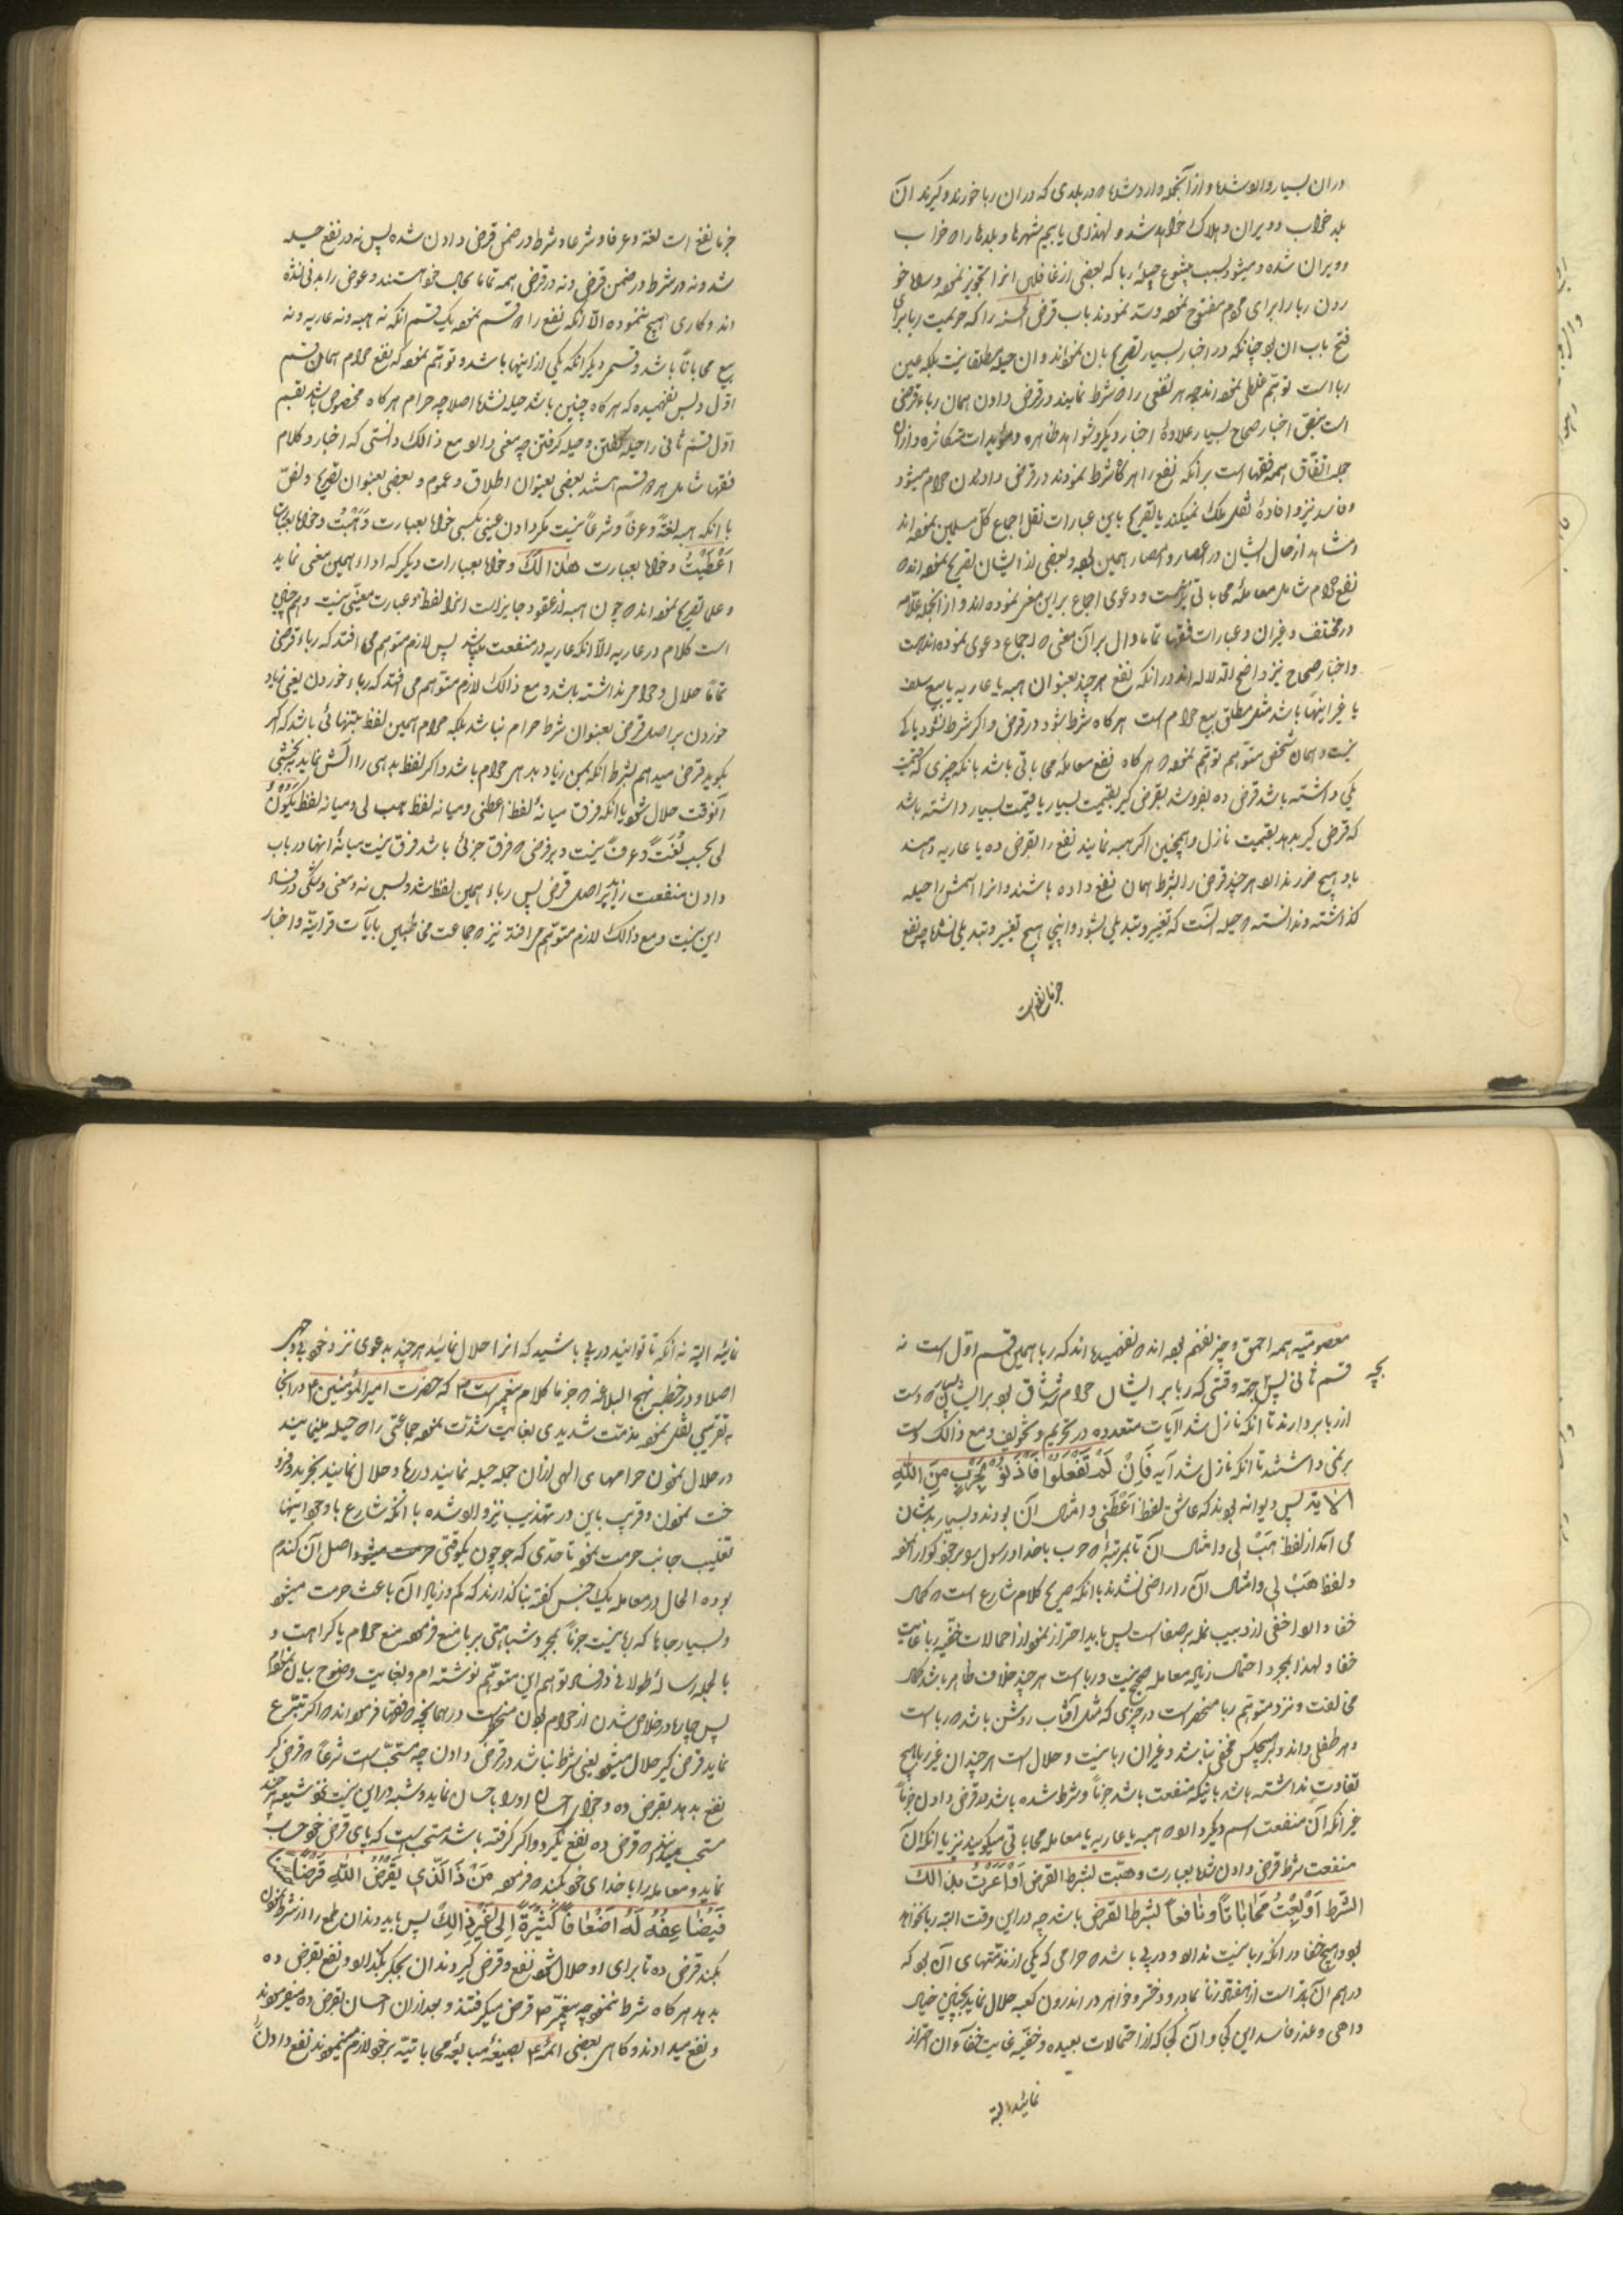 دران بسیار وارد شده و از آنجمله وارد شده که در بلدی که در ان ربا خورند و گیرند آن
بلد خراب و ویران و هلاک خواهد شد و لهذا می یابیم شهرها و بلدها را که خراب
و ویران شده و میشود بسبب شیوع حیلهٔ ربا که بعضی از غافلین انرا تجویز نموده و
ربا را برای مردم مفتوح نموده و سد نمودند باب قرض الحسنه را که حرمیت ربا برای
فتح باب ان بود چنانکه در اخبار بسیار تصریح بان نموده‌اند و ان حیله مطلقا نیست بلکه عین
ربا است توهم غلطی نموده‌اند چه هر نفعی را که شرط نمایند در قرض دادن همان رباء قرضی
است بنص اخبار صحاح بسیار علاوهٔ اخبار دیگر و شواهد ظاهره و مؤیدات متکاثره و از
جمله اتفاق همه فقها است بر آنکه نفع را هر گاه شرط نمودند در قرض دادن حرام میشود
و فاسد نیز و افادهٔ نقل ملک نمیکند بالصریح باین عبارات نقل اجماع کل مسلمین نموده‌اند
و مشاهد از حال ایشان در اعصار و امصار همین بوده و بعضی از ایشان تصریح نموده‌اند که
نفع حرام شامل معامله محاباتی نیز هست و دعوی اجماع بر این معنی نموده‌اند و از انجمله علامه
در مختلف و غیر ان و عبارات فقها تماما دال بر آن معنی که اجماع دعوی نموده‌اند هست
و اخبار صحاح نیز واضح الدلاله‌اند در آنکه نفع هر چند بعنوان هبه یا عاریه یا بیع سلف
یا غیر اینها باشد مثل مطلق بیع حرام است هر گاه شرط شود در قرض و اگر شرط نشود باکی
نیست و همان شخص متوهم توهم نموده که هر گاه نفع معامله محاباتی باشد بانکه چیزی که قیمت
یکی داشته باشد قرض ده بفروشد بقرض گیر بقیمت بسیار یا قیمت بسیار داشته باشد
که قرض گیر بدهد بقیمت نازل و همچنین اگر هبه نمایند نفع را بقرض ده یا عاریه دهند
باو هیچ ضرر ندارد هر چند قرض را بشرط همان نفع داده باشند و انرا اسمش را حیله
گذاشته و ندانسته که حیله آنست که تغییر و تبدیلی بشود و اینجا هیچ تغییر و تبدیلی نشده چه نفع
جزما نفع است
جزما نفع است لغة و عرفا و شرعا و شرط در ضمن قرض دادن شده پس نه در نفع حیله
شد و نه در شرط در ضمن قرض و نه در قرض همه تماما بحال خود هستند و عوض را بدنی نشده
اند و کاری هیچ ننموده الا آنکه نفع را دو قسم نموده یک قسم آنکه نه هبه و نه عاریه و نه
بیع محاباتا باشد و قسم دیگر آنکه یکی از اینها باشد و توهم نموده که نفع حرام همان قسم
اول و بس نفهمیده که هر گاه چنین باشد حیله نشده اصلا چه حرام هر گاه مخصوص باشد بقسم
اول قسم ثانی را حیله گفتن و حیله گرفتن چه معنی دارد مع ذالک دانستی که اخبار و کلام
فقها شامل هر دو قسم هستند بعضی بعنوان اطلاق و عموم و بعضی بعنوان تصریح و نص
با آنکه هبه لغة و عرفا و شرعا نیست مگر دادن عینی بکسی خواه بعبارت وَهَبْتُ و خواه بعبارت
اَعْطَیْتُ و خواه بعبارت هذا لَکَ و خواه بعبارات دیگر که اداء همین معنی نماید
و علما تصریح نموده‌اند که چون هبه از عقود جایز است انرا لفظ و عبارت معینی نیست و هم چنین
است کلام در عاریه الا آنکه عاریه در منفعت میباشد پس لازم متوهم می افتد که رباء قرضی
تماما حلال و حرامی نداشته باشد و مع ذالک لازم متوهم می افتد که رباء خوردن یعنی زیاده
خوردن بر اصل قرض بعنوان شرط حرام نباشد بلکه حرام همین لفظ بتنهائی باشد که اگر
بگوید قرض میدهم بشرط آنکه بمن زیاد بدهی حرام باشد و اگر لفظ بدهی را الش نماید ببخشی
آنوقت حلال شود با آنکه فرق میانهٔ لفظ اعطنی و میانه لفظ هب لی و میانه لفظ یَکُونُ
لی بحسب لغت و عرف نیست و بر فرض که فرق جزئی باشد فرق نیست میانهٔ انها در باب
دادن منفعت زاید بر اصل قرض پس رباء همین لفظ شد و بس نه معنی و شکی در فساد
این نیست و مع ذالک لازم متوهم می افتد نیز که جماعت مخاطبین بآیات قرانیه و اخبار
معصومیه همه احمق و چیز نفهم بوده‌اند که نفهمیده‌اند که ربا همین قسم اول است نه
قسم ثانی پس بچه جهة وقتی که ربا بر ایشان حرام شد شاق بود بر ایشان بسیار که دست
از ربا بردارند تا آنکه نازل شد آیات متعدده در تحریم و تخویف و مع ذالک دست
بر نمی داشتند تا آنکه نازل شد آیه فَاِنْ لَمْ تَفْعَلُوا فَاْذَنُوا بِحَرْبٍ مِنَ اللهِ
الایة پس دیوانه بودند که عاشق لفظ اَعْطِنی و امثال آن بودند و بسیار بدشان
می آمد از لفظ هَبْ لی و امثال آن تا بمرتبهٔ که حرب با خدا و رسول بر خود گوارا نموده
و لفظ هَبْ لی و امثال آن را راضی نشدند با آنکه صریح کلام شارع است که ربا کمال
خفا دارد اخفی از دبیب نمله بر صفا است پس باید احتراز نمود از احتمالات خفیه ربا غایت
خفا و لهذا بمجرد احتمال زیاده معامله صحیح نیست و ربا است هر چند خلاف ظاهر باشد کمال
مخالفت و نزد متوهم ربا منحصر است در چیزی که مثل آفتاب روشن باشد که ربا است
و هر طفلی داند و بر هیچکس مخفی نباشد و غیر ان ربا نیست و حلال است هر چند ان غیر با ربا هیچ
تفاوت نداشته باشد باینکه منفعت باشد جزما و شرط شده باشد در قرض دادن جزما
غیر آنکه آن منفعت اسم دیگر دارد که هبه یا عاریه یا معامله محاباتی میگویند نیز با آنکه آن
منفعت شرط قرض دادن شده بعبارت وهبت بشرط القرض او اَعَرْتُ بذالک
الشرط اَوْ بِعْتُ مُحاباتاً و نافعاً بشرط القرض باشد چه در این وقت البته ربا نخواهد
بود و هیچ خفا در آنکه ربا نیست ندارد و در پی باشد که حرامی که یکی از مذمتهای آن بود که
درهم آن بدتر است از هفتاد زنا بمادر و دختر و خواهر در اندرون کعبه حلال نماید بچنین خیال
واهی و عذر فاسد این کی و آن کجا که از احتمالات بعیده و خفیه غایت خفاء ان احتراز
نمائید البته
نمائید البته نه آنکه تا توانید در پی باشید که انرا حلال نمائید هر چند بدعوی نزد خود
اصلا و در خطبه نهج البلاغه که جزما کلام پیغمبر است ص که حضرت امیر المؤمنین ع در آنجا
بتقریبی نقل نموده مذمت شدیدی بغایت شدت نموده جماعتی را که حیله مینمایند
در حلال نمودن حرامهای الهی از ان جمله حیله نمایند در ربا و حلال نمایند بخرید و فرو
خت نمودن و قریب باین در تهذیب نیز وارد شده با آنکه شارع با وجود اینها
تغلیب جانب حرمت نموده تا حدی که جو چون یکوقتی اصل آن گندم
بوده الحال در معامله یک جنس گفته بنا گذارند که کم و زیاد آن باعث حرمت میشود
و بسیار جاها که ربا نیست جزما بمجرد شباهتی بربا منع فرموده منع حرام یا کراهت و
بالجمله رساله طولانی در فساد توهم این متوهم نوشته‌ام و بغایت وضوح بیان نموده‌ام
پس چاره در خلاص شدن از حرام بودن منحصر است در همانچه که فقها فرموده‌اند که اگر تبرع
نماید قرض گیر حلال میشود یعنی شرط نباشد در قرض دادن چه مستحب است شرعا که قرض گیر
نفع بدهد بقرض ده و جزای احسان او را باحسان نماید و شبهه در این نیست نزد شیعه هر چند
مستحب میدانند که قرض ده نفع نگیرد و اگر گرفته باشد مستحب است که پای قرض خود حساب
نماید و معامله را با خدای خود کند که فرموده مَنْ ذَا الَّذی یُقْرِضُ اللهَ قَرْضاً حَسَناً
فَیُضاعِفُهُ لَهُ اَضْعافاً کَثیرَةً اِلی غَیْرِ ذالِکَ پس باید دندان طمع را از شرط نمودن
بکند قرض ده تا برای او حلال شود نفع و قرض گیر دندان بجگر بگذارد و نفع بقرض ده
بدهد هر گاه شرط ننموده چه پیغمبر ص قرض میگرفتند و بعد از ان احسان بقرض ده میفرمودند
و نفع میدادند و گاهی بعضی ائمه ع بصیغهٔ مبایعهٔ محاباتیه بر خود لازم مینمودند نفع دادن را